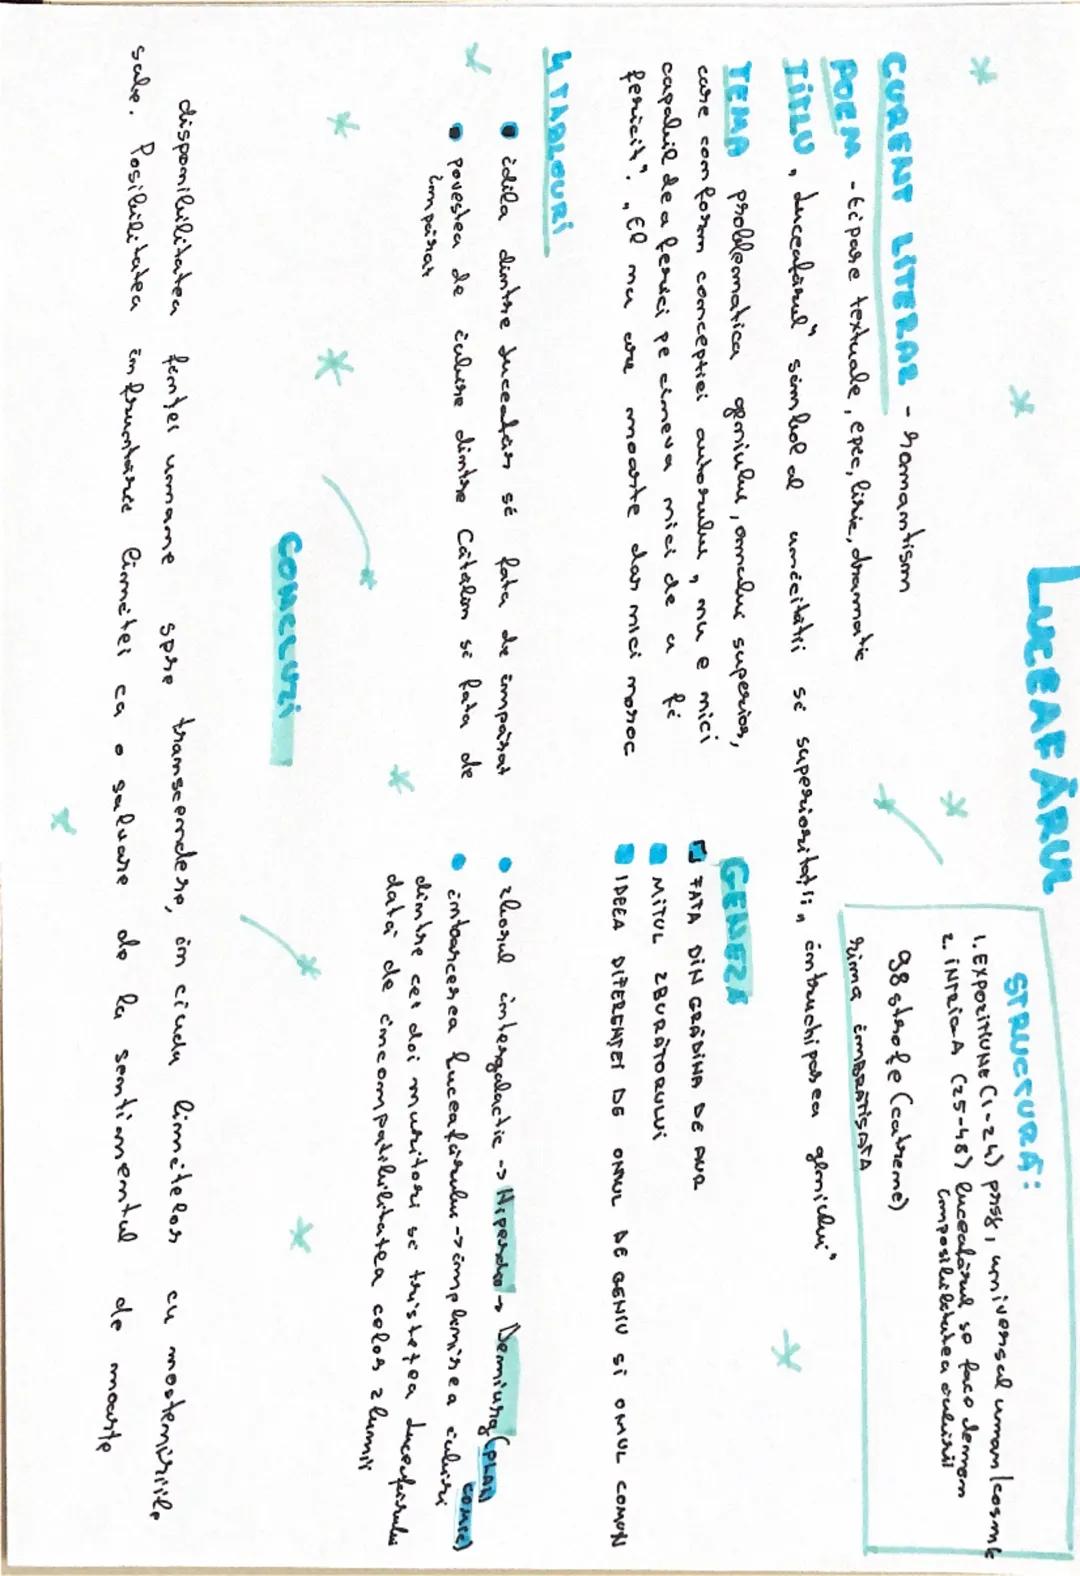 LUCEAFĂRUL
CURENT LITERAR - romantism
POEM - tipare textuale, epic, liric, dramatic
TITLU "Luceafărul" simbol al unicității și superiorității, întruchiparea geniului"
TEMA problematica geniului, omului superior,
care conform concepției autorului, nu e nici
capabil de a ferici pe cineva nici de a fi
fericit". "El nu are moarte dar nici noroc
STRUCTURĂ:
1. EXPOZIȚIUNE (1-24) universul uman/cosmic
2. INTRIGA (25-48) luceafărul se face demon
imposibilitatea iubirii
98 strofe (catrene)
rima ÎMBRĂȚIȘATĂ
GENEZA
FATA DIN GRĂDINA DE AUR
MITUL ZBURĂTORULUI
IDEEA DIFERENȚEI DE OMUL DE GENIU ȘI OMUL COMUN
4 TABLOURI
idila dintre Luceafăr și fata de împărat
povestea de iubire dintre Cătălin și fata de
împărat
zborul intergalactic -> Hiperion -> Demiurg (PLAN
COSMIC)
întoarcerea luceafărului -> împlinirea iubirii
dintre cei doi muritori și tristețea Luceafărului
dată de incompatibilitatea celor 2 lumi
CONCLUZI
disponibilitatea ființei umane spre transcendere, în ciuda limitelor cu moștenirile
sale. Posibilitatea înfruntării limitei ca o salvare de la sentimentul de moarte